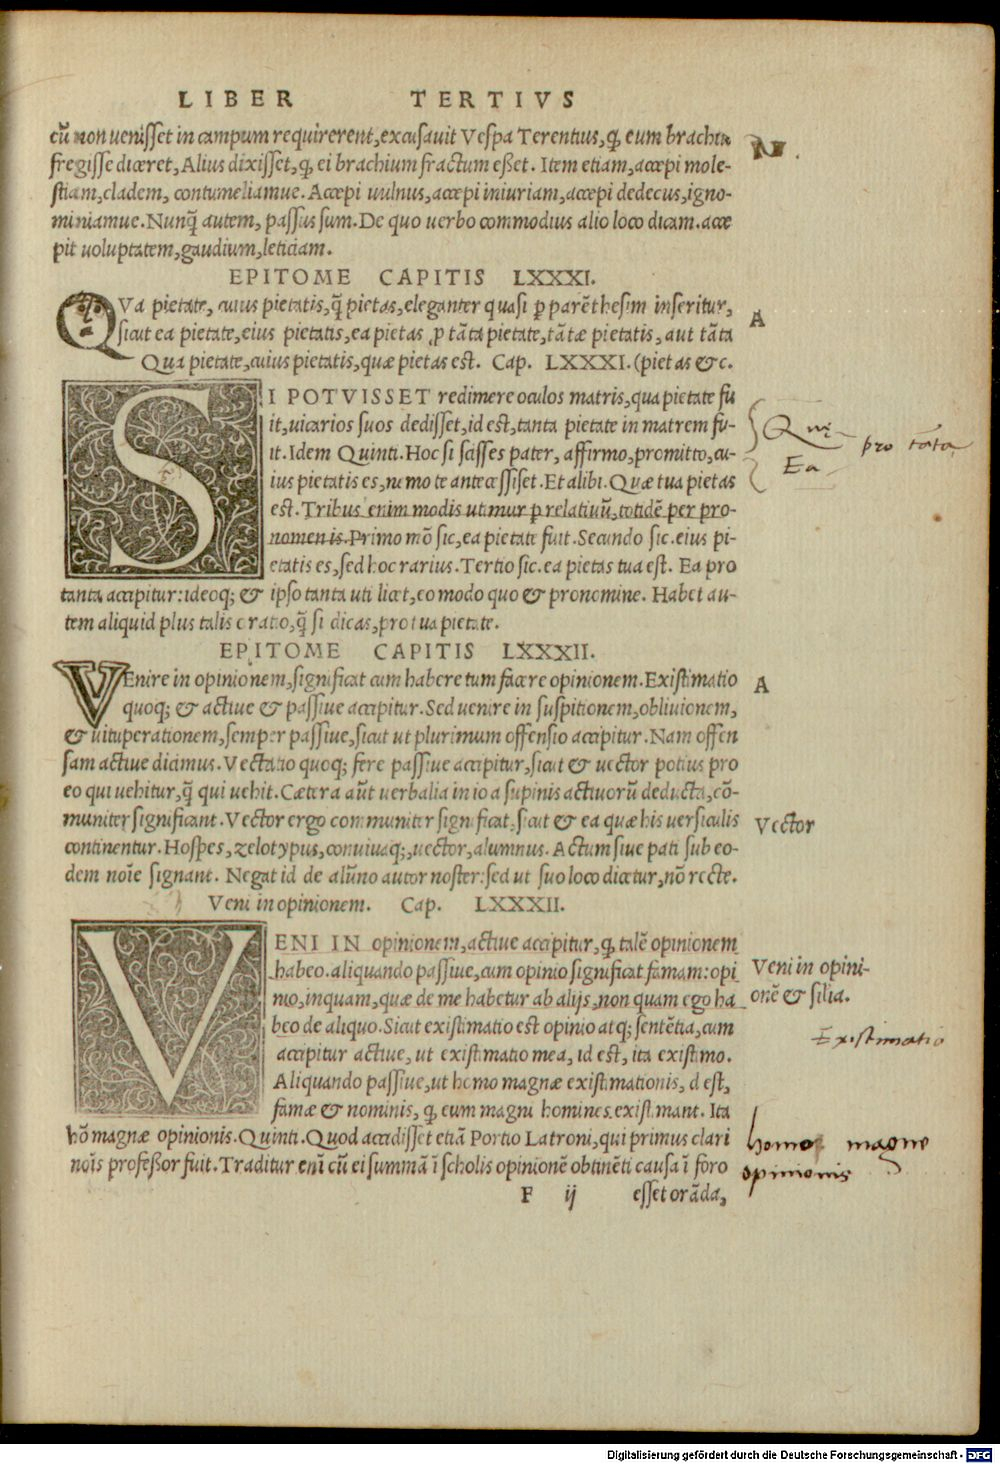 LIBER TERTIVS
cū non venisset in campum requirerent, excusauit Vespa Terentius, q; eum brachiū
fregisse diceret, Alius dixisset, q; ei brachium fractum esset. Item etiam, accepi mole-
stiam, cladem, contumeliamue. Accepi uulnus, accepi iniuriam, accepi dedecus, igno-
miniamue. Nunq̃ autem, passus sum. De quo verbo commodius alio loco dicam. acce
pit uoluptatem, gaudium, leticiam.
EPITOME CAPITIS LXXXI.
QVa pietate, cuius pietatis, q̃ pietas, eleganter quasi ꝑ parēthesim inseritur,
sicut ea pietate, eius pietatis, ea pietas, ꝓ tāta pietate, tātæ pietatis, aut tāta
Qua pietate, cuius pietatis, quæ pietas est. Cap. LXXXI. (pietas & c.
SI POTVISSET redimere oculos matris, qua pietate fu
it, uicarios suos dedisset, id est, tanta pietate in matrem fu-
it. Idem Quinti. Hoc si scisses pater, affirmo, promitto, cu-
ius pietatis es, nemo te antecessisset. Et alibi. Quæ tua pietas
est. Tribus enim modis utimur ꝑ relatiuū, totidē per pro-
nomen is. Primo mō sic, ea pietate fuit. Secundo sic. eius pi-
etatis es, sed hoc rarius. Tertio sic. ea pietas tua est. Ea pro
tanta accipitur: ideoq; & ipso tanta uti licet, eo modo quo & pronomine. Habet au-
tem aliquid plus talis oratio, q̃ si dicas, pro tua pietate.
EPITOME CAPITIS LXXXII.
VEnire in opinionem, significat tum habere tum facere opinionem. Existimatio
quoq; & actiue & passiue accipitur. Sed uenire in suspitionem, obliuionem,
& uituperationem, semper passiue, sicut ut plurimum offensio accipitur. Nam offen
sam actiue dicimus. Vectatio quoq; fere passiue accipitur, sicut & uector potius pro
eo qui uehitur, q̃ qui uehit. Cætera aūt uerbalia in io a supinis actiuorū deducta, cō-
muniter significant. Vector ergo communiter significat, sicut & ea quæ his uersiculis
continentur. Hospes, zelotypus, conuiuaq;, uector, alumnus. Actum siue pati sub eo-
dem noīe signant. Negat id de alūno autor noster: sed ut suo loco dicetur, nō recte.
Veni in opinionem. Cap. LXXXII.
VENI IN opinionem, actiue accipitur, q; talē opinionem
habeo. aliquando passiue, cum opinio significat famam: opi
nio, inquam, quæ de me habetur ab alijs, non quam ego ha
beo de aliquo. Sicut existimatio est opinio atq; sentētia, cum
accipitur actiue, ut existimatio mea, id est, ita existimo.
Aliquando passiue, ut homo magnæ existimationis, id est,
famæ & nominis, q; eum magni homines existimant. Ita
hō magnæ opinionis. Quinti. Quod accidisset etiā Portio Latroni, qui primus clari
noīs professor fuit. Traditur enī cū ei summā ī scholis opinionē obtinēti causa ī foro
F ij esset orāda,
N.
A
Quę
Ea
pro tāta
A
Vector
Veni in opini-
onē & silia.
Existimatio
homo magne
opinionis
Digitalisierung gefördert durch die Deutsche Forschungsgemeinschaft - DFG